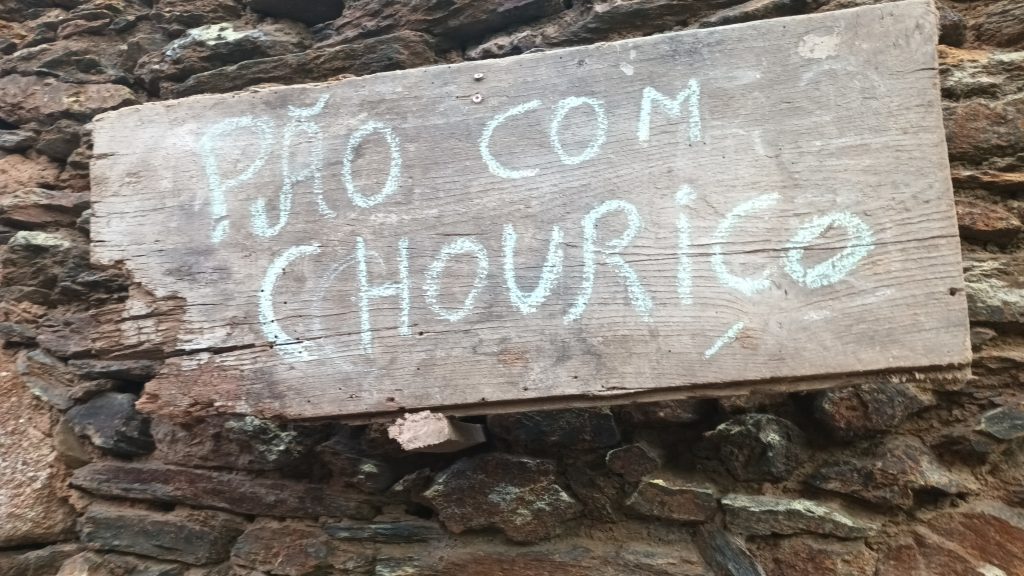 PÃO COM
CHOURIÇO